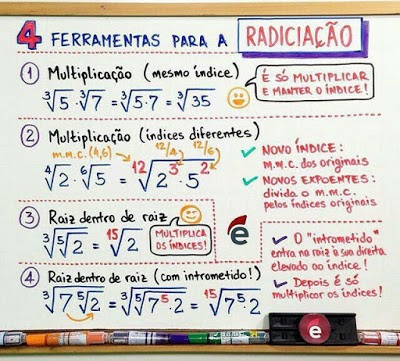 4 FERRAMENTAS PARA A RADICIAÇÃO
① Multiplicação (mesmo índice)
∛5 · ∛7 = ∛5·7 = ∛35
É SÓ MULTIPLICAR
E MANTER O ÍNDICE!
② Multiplicação (índices diferentes)
m.m.c. (4,6) 12/4 12/6
⁴√2 · ⁶√5 = ¹²√2³ · 5²
✓ NOVO ÍNDICE:
m.m.c. dos originais
✓ NOVOS EXPOENTES:
divida o m.m.c.
pelos índices originais
③ Raiz dentro de raiz
∛⁵√2 = ¹⁵√2
MULTIPLICA
OS ÍNDICES!
e
④ Raiz dentro de raiz (com intrometido!)
∛7 ⁵√2 = ∛⁵√7⁵·2 = ¹⁵√7⁵·2
✓ O "intrometido"
entra na raiz à sua direita
elevado ao índice!
✓ Depois é só
multiplicar os índices!
e